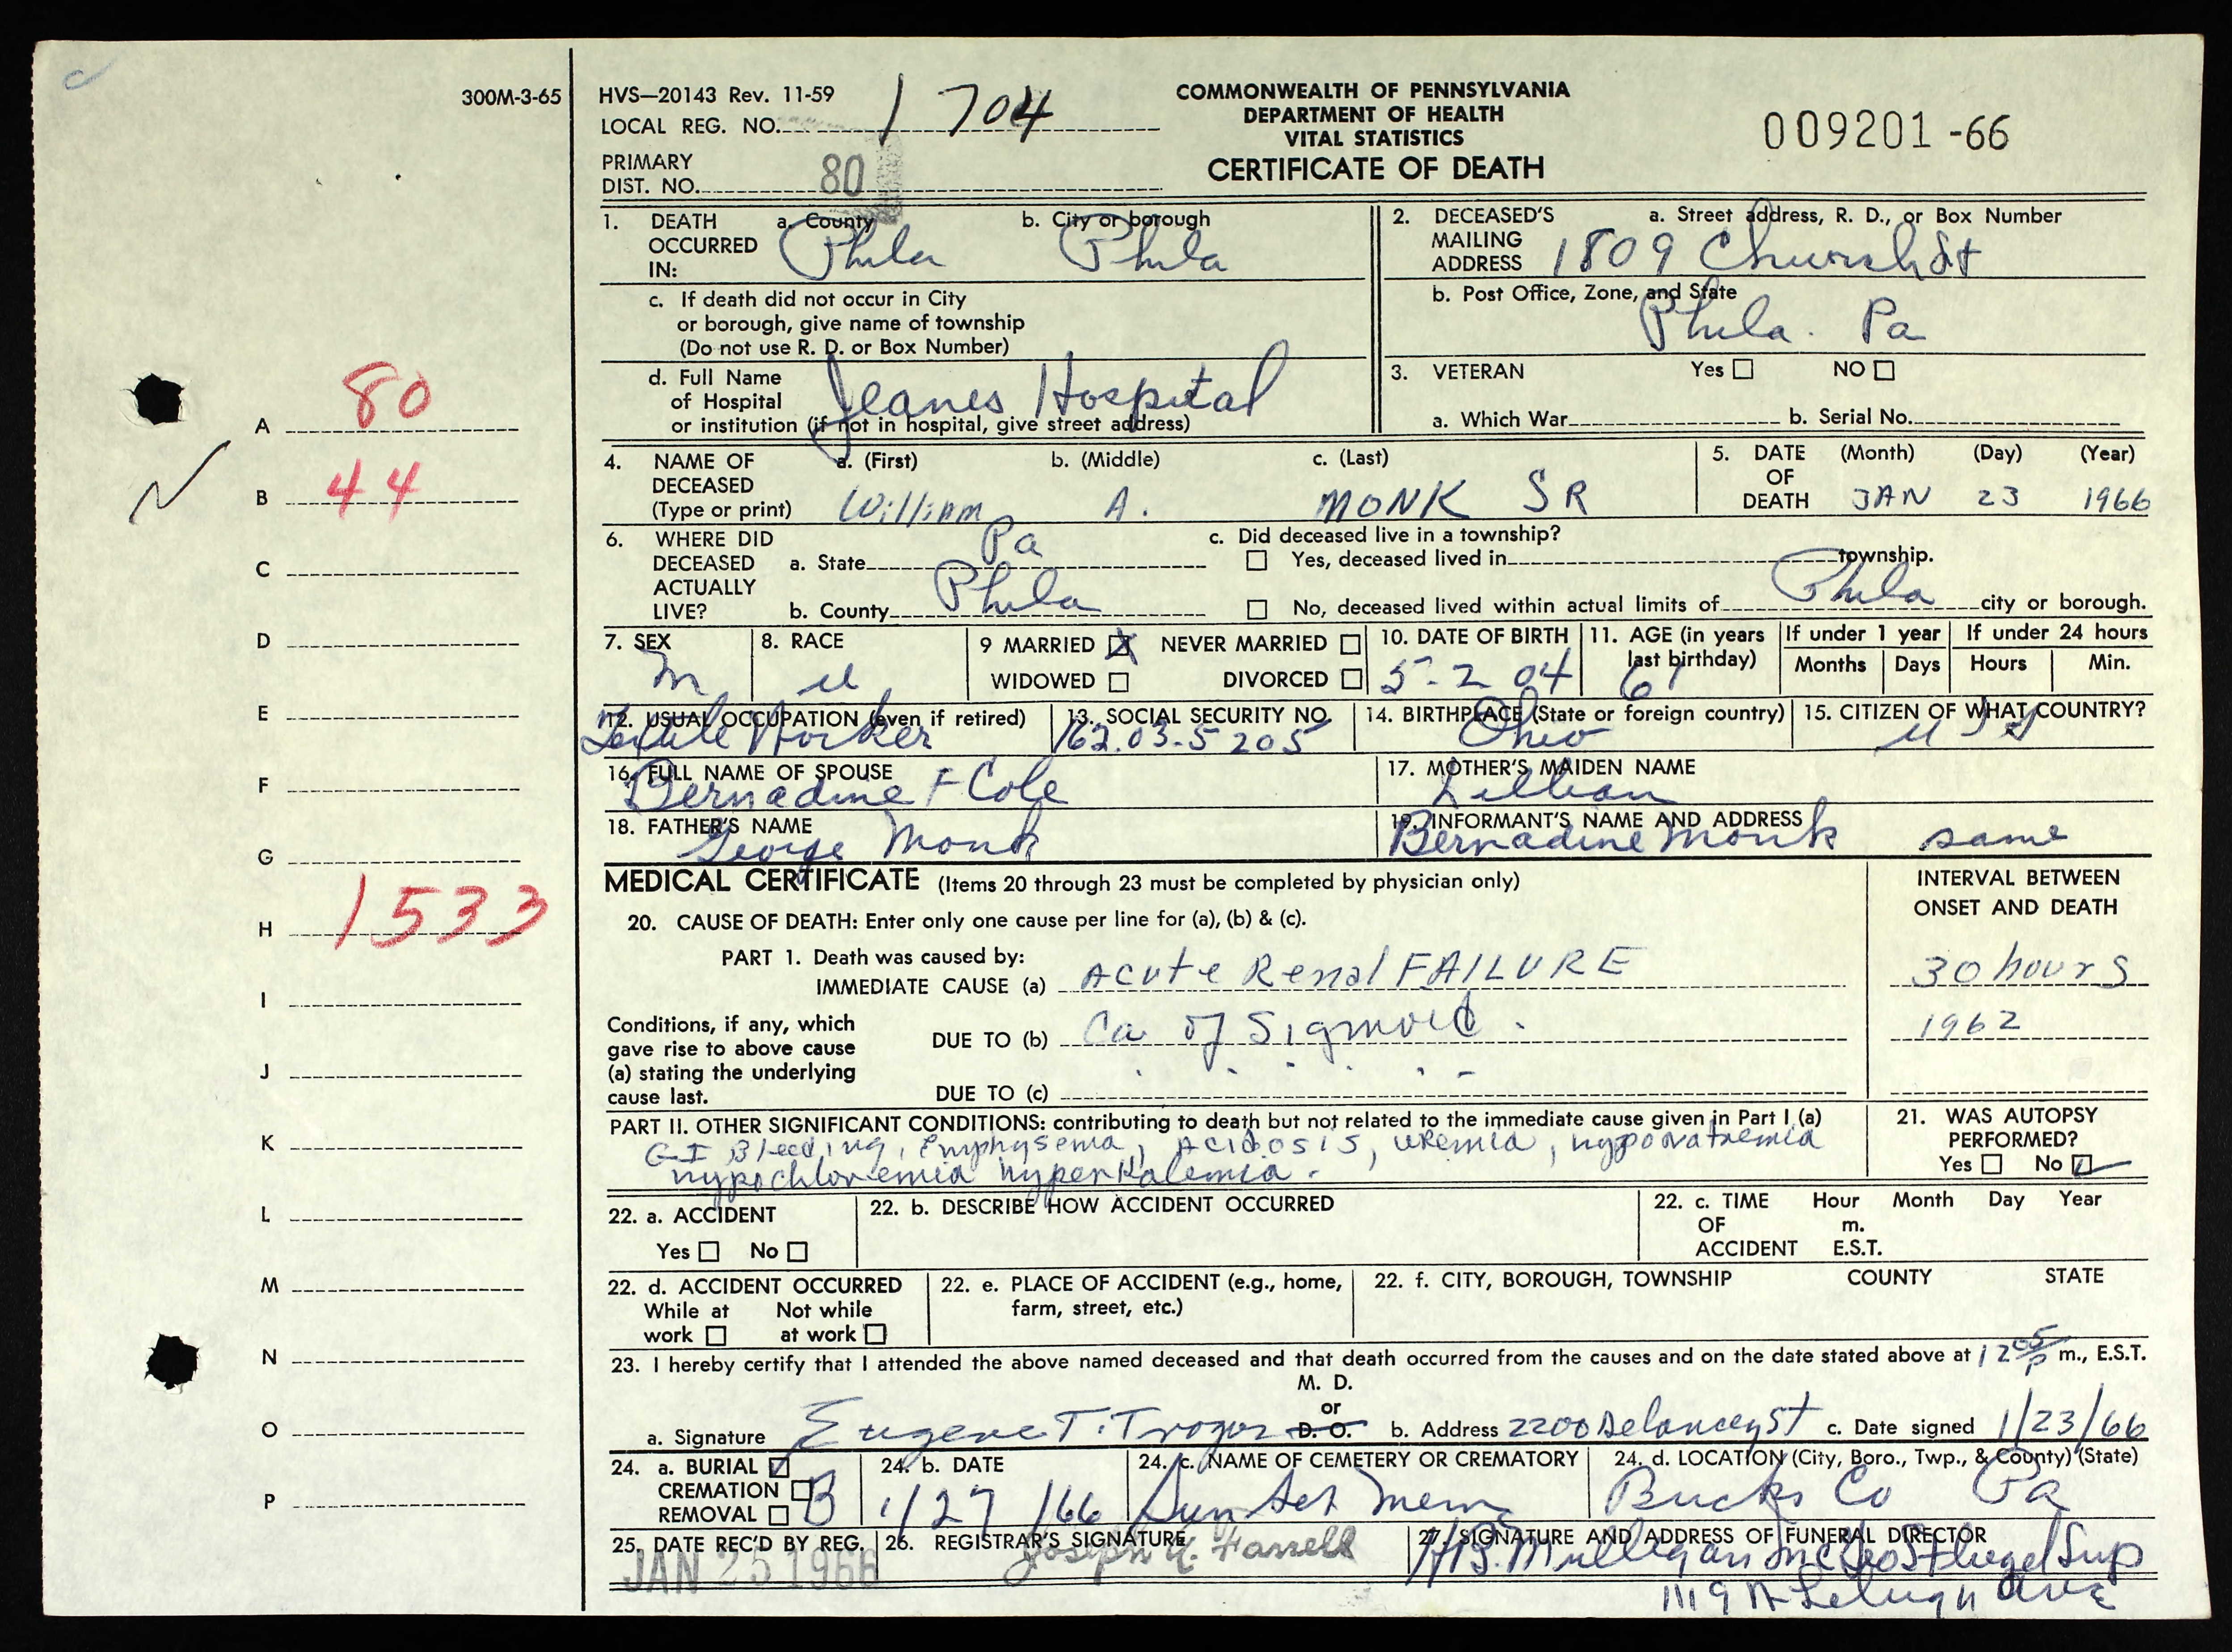 300M-3-65
HVS—20143 Rev. 11-59
LOCAL REG. NO. 1704
PRIMARY
DIST. NO. 80
COMMONWEALTH OF PENNSYLVANIA
DEPARTMENT OF HEALTH
VITAL STATISTICS
CERTIFICATE OF DEATH
009201-66
1. DEATH OCCURRED IN: a. County b. City or borough
Phila Phila
c. If death did not occur in City
or borough, give name of township
(Do not use R. D. or Box Number)
d. Full Name
of Hospital
or institution (if not in hospital, give street address)
Jeanes Hospital
2. DECEASED'S MAILING ADDRESS a. Street address, R. D., or Box Number
1809 Church St
b. Post Office, Zone, and State
Phila. Pa
3. VETERAN Yes NO
a. Which War b. Serial No.
4. NAME OF DECEASED (Type or print) a. (First) b. (Middle) c. (Last)
William A. MONK SR
5. DATE OF DEATH (Month) (Day) (Year)
JAN 23 1966
6. WHERE DID DECEASED ACTUALLY LIVE?
a. State Pa
b. County Phila
c. Did deceased live in a township?
Yes, deceased lived in township.
No, deceased lived within actual limits of Phila city or borough.
7. SEX
M
8. RACE
9 MARRIED X NEVER MARRIED
WIDOWED DIVORCED
10. DATE OF BIRTH
5-2 04
11. AGE (in years last birthday)
61
If under 1 year
Months Days
If under 24 hours
Hours Min.
12. USUAL OCCUPATION (even if retired)
Textile Worker
13. SOCIAL SECURITY NO.
162.03-5205
14. BIRTHPLACE (State or foreign country)
Ohio
15. CITIZEN OF WHAT COUNTRY?
16. FULL NAME OF SPOUSE
Bernadine F Cole
17. MOTHER'S MAIDEN NAME
Lillian
18. FATHER'S NAME
George Monk
19. INFORMANT'S NAME AND ADDRESS
Bernadine Monk same
MEDICAL CERTIFICATE (Items 20 through 23 must be completed by physician only)
INTERVAL BETWEEN
ONSET AND DEATH
20. CAUSE OF DEATH: Enter only one cause per line for (a), (b) & (c).
PART 1. Death was caused by:
IMMEDIATE CAUSE (a) Acute Renal FAILURE 30 hours
Conditions, if any, which
gave rise to above cause
(a) stating the underlying
cause last.
DUE TO (b) Ca of Sigmoid. 1962
DUE TO (c)
PART II. OTHER SIGNIFICANT CONDITIONS: contributing to death but not related to the immediate cause given in Part I (a)
G-I Bleeding, Emphysema, Acidosis, uremia, hyponatremia
hypochloremia hyperkalemia.
21. WAS AUTOPSY
PERFORMED?
Yes No
22. a. ACCIDENT
Yes No
22. b. DESCRIBE HOW ACCIDENT OCCURRED
22. c. TIME OF ACCIDENT Hour Month Day Year
m.
E.S.T.
22. d. ACCIDENT OCCURRED
While at work Not while at work
22. e. PLACE OF ACCIDENT (e.g., home,
farm, street, etc.)
22. f. CITY, BOROUGH, TOWNSHIP COUNTY STATE
23. I hereby certify that I attended the above named deceased and that death occurred from the causes and on the date stated above at 12 05 P m., E.S.T.
M. D.
or
D. O.
a. Signature Eugene T. b. Address 2200 Delancey St c. Date signed 1/23/66
24. a. BURIAL
CREMATION
REMOVAL
B
24. b. DATE
1/27/66
24. c. NAME OF CEMETERY OR CREMATORY
Sunset Mem
24. d. LOCATION (City, Boro., Twp., & County) (State)
Bucks Co Pa
25. DATE REC'D BY REG.
JAN 25 1966
26. REGISTRAR'S SIGNATURE
Farrell
27. SIGNATURE AND ADDRESS OF FUNERAL DIRECTOR
Mulligan Inc Sup
1119 Lehigh Ave
A 80
B 44
C
D
E
F
G
H 1533
I
J
K
L
M
N
O
P